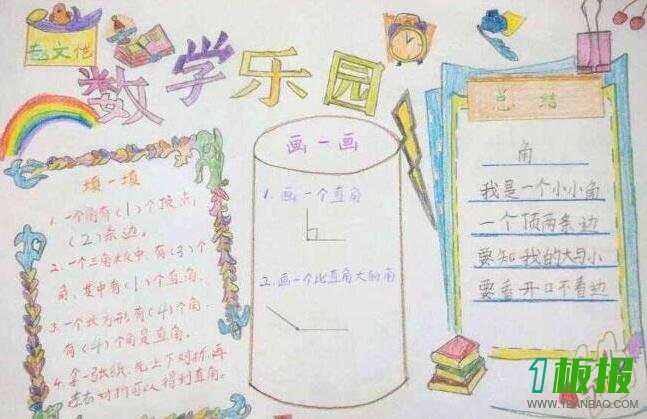 赵文恺
数学乐园
填一填
1.一个角有(1)个顶点,
(2)条边。
2.一个三角板中,有(3)个
角,其中有(1)个直角。
3.一个长方形,有(4)个角.
有(4)个角是直角。
4.拿一张纸,先上下对折,再
左右对折可以得到直角。
画一画
1.画一个直角
2.画一个比直角大的角
总结
角
我是一个小小角
一个顶两条边
要知我的大与小
要看开口不看边
1板报
WWW.1BANBAO.COM